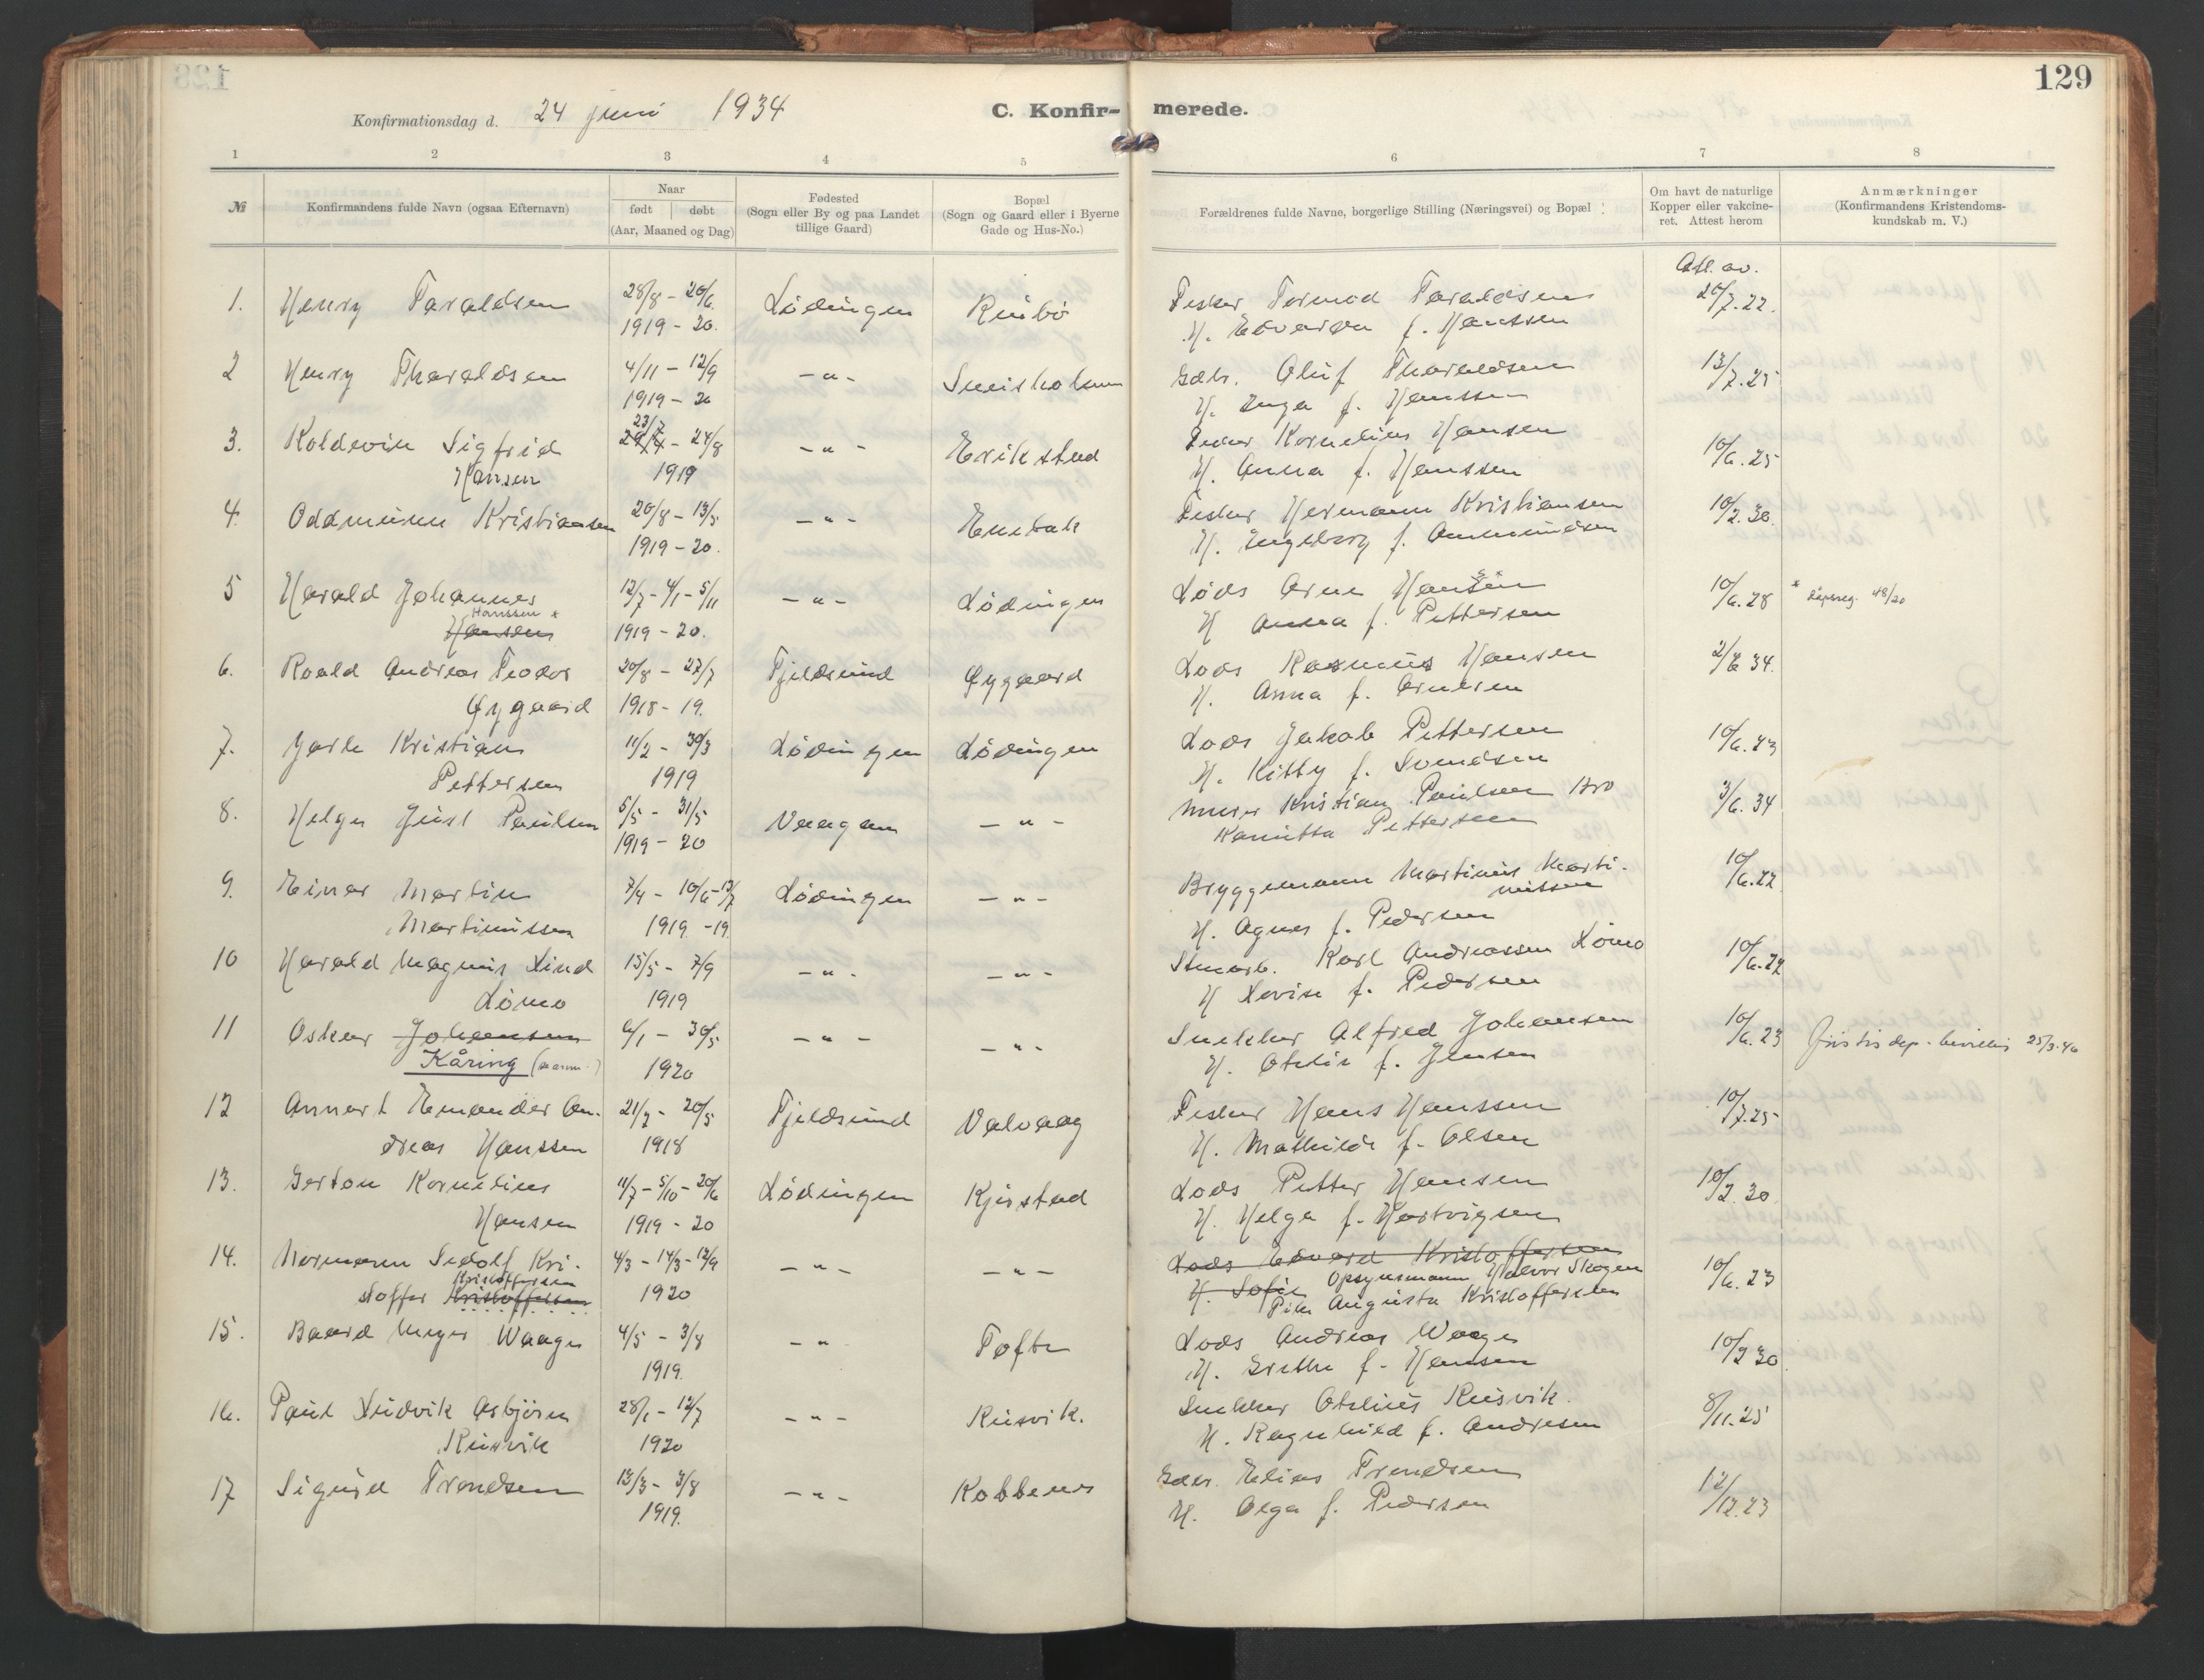 129
Konfirmationsdag d. 24 juni 1934
C. Konfirmerede.
1 2 3 4 5 6 7 8
№
Konfirmandens fulde Navn (ogsaa Efternavn)
Naar
født | døbt
(Aar, Maaned og Dag)
Fødested
(Sogn eller By og paa Landet
tillige Gaard)
Bopæl
(Sogn og Gaard eller i Byerne
Gade og Hus-No.)
Forældrenes fulde Navne, borgerlige Stilling (Næringsvei) og Bopæl
Om havt de naturlige
Kopper eller vakcine-
ret. Attest herom
Anmærkninger
(Konfirmandens Kristendoms-
kundskab m. V.)
Att. av.
1. Henry Taraldsen 28/8 - 20/6 Lødingen Rinbø Fisker Tormod Taraldsen 20/7.22.
1919 - 20. H. Edvarda f. Hanssen
2 Henry Tharaldsen 4/11 - 12/9 - " - Sneisholmen Gdbr. Oluf Tharaldsen 13/7.25
1919 - 20 H. Inga f. Hanssen
23/7
3. Koldevin Sigfrid - 24/8 - " - Erikstad Fisker Kornelius Hansen 10/6.25
Hansen 1919 H. Anna f. Hanssen
4. Oddmunn Kristiansen 20/8 - 13/5 - " - Enebak Fisker Hermann Kristiansen 10/2.30.
1919 - 20. H. Ingeborg f. Ammundsen
5 Harald Johannes 12/7 - 4/1 - 5/11 - " - Lødingen Lods Arne Hanssen * 10/6.28 * dåpsreg. 48/20
Hanssen *
Hansen 1919 - 20. H Anna f. Pettersen
6. Roald Andreas Teodor 20/8 - 27/7 Fjeldsund Øygaard Lods Rasmus Hansen 2/6 34.
Øygaard 1918 - 19. H. Anna f. Arntsen
7. Jarle Kristian 11/2 - 30/3 Lødingen Lødingen Lods Jakob Pettersen 10/6.23
Pettersen 1919 H. Kitty f. Svendsen
8. Helge Juul Paulsen 5/5 - 31/5 Vaagan - " - Murer Kristian Paulsen Bro 3/6.34
1919 - 20 Kamitta Pettersen
9. Einar Martin 7/4 - 10/6 - 13/7 Lødingen - " - Bryggemann Martinus Marti- 10/6.22
nussen
Martinussen 1919 - 19 H. Agnes f. Pedersen
10 Harald Magnus Lind 15/5 - 7/9 - " - - " - Stuearb. Karl Andreassen Lømo 10/6.22
Lømo 1919 H Lovise f. Pedersen
11 Oskar Johansen 6/1 - 30/5 - " - - " - Snekker Alfred Johansen 10/6.23 Justisdep. bevilling 25/3.46
Kåring (se anm.) 1920 H. Otelie f. Jensen
12 Annart Emander An- 21/2 - 20/5 Fjeldsund Valvaag Fisker Hans Hanssen 10/7.25
dreas Hanssen 1918 H. Mathilde f. Olsen
13. Gerton Kornelius 11/7 - 5/10 - 20/6 Lødingen Kjerstad Lods Petter Hansen 10/2.30
Hansen 1919 - 20 H. Helga f. Hartvigsen
14. Normann Sedolf Kri- 4/3 - 14/3 - 12/9 - " - - " - Lods Edvard Kristoffersen 10/6.23
Kristoffersen
stoffer Kristoffersen 1920 H. Sofie Opsynsmann Halvor Skogen
Pike Augusta Kristoffersen
15. Baard Meyer Waage 4/5 - 3/8 - " Tofte Lods Andreas Waage 10/2 30
1919. H. Grethe f. Hansen
16. Paul Ludvik Asbjørn 28/1 - 12/7 - " - Rinsvik. Snekker Otelius Rinsvik. 8/11.25
Rinsvik 1920 H. Ragnhild f. Andresen
17 Sigurd Trondsen 13/3 - 3/8 - " - Kobbenes Gdbr. Elias Trondsen 12/12.23
1919. H. Olga f. Pedersen